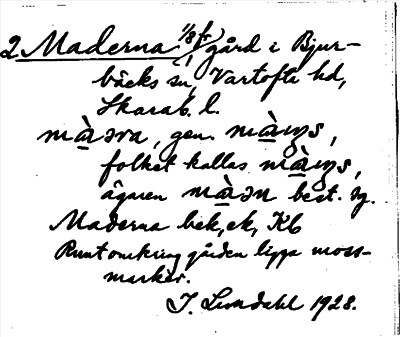 2 Maderna 1/8 f, gård i Bjur-
bäcks sn, Vartofta hd,
Skarab. l.
màəva, gen. màɯs,
folket kallas màɯs,
ägaren màən best. sg.
Maderna bek, ek, Kb
Runtomkring gården ligga moss-
marker.
J. Lundahl 1928.